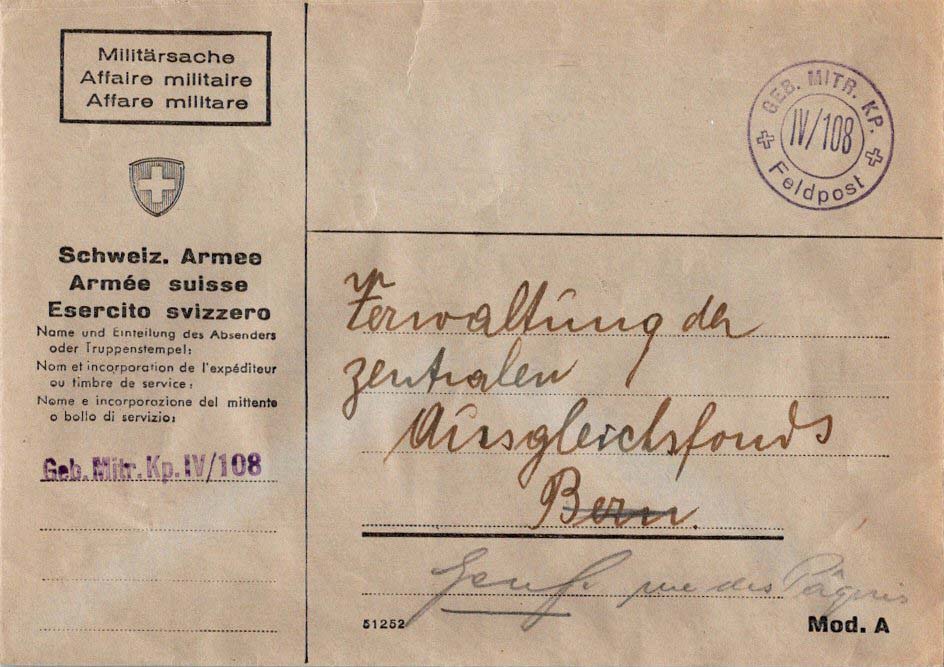 Militärsache
Affaire militaire
Affare militare
Schweiz. Armee
Armée suisse
Esercito svizzero
Name und Einteilung des Absenders
oder Truppenstempel:
Nom et incorporation de l'expéditeur
ou timbre de service:
Nome e incorporazione del mittente
o bollo di servizio:
Geb. Mitr. Kp. IV/108
GEB. MITR. KP.
IV/108
Feldpost
Verwaltung der
zentralen
Ausgleichsfonds
Bern.
Genf. rue des Pâquis
51252
Mod. A